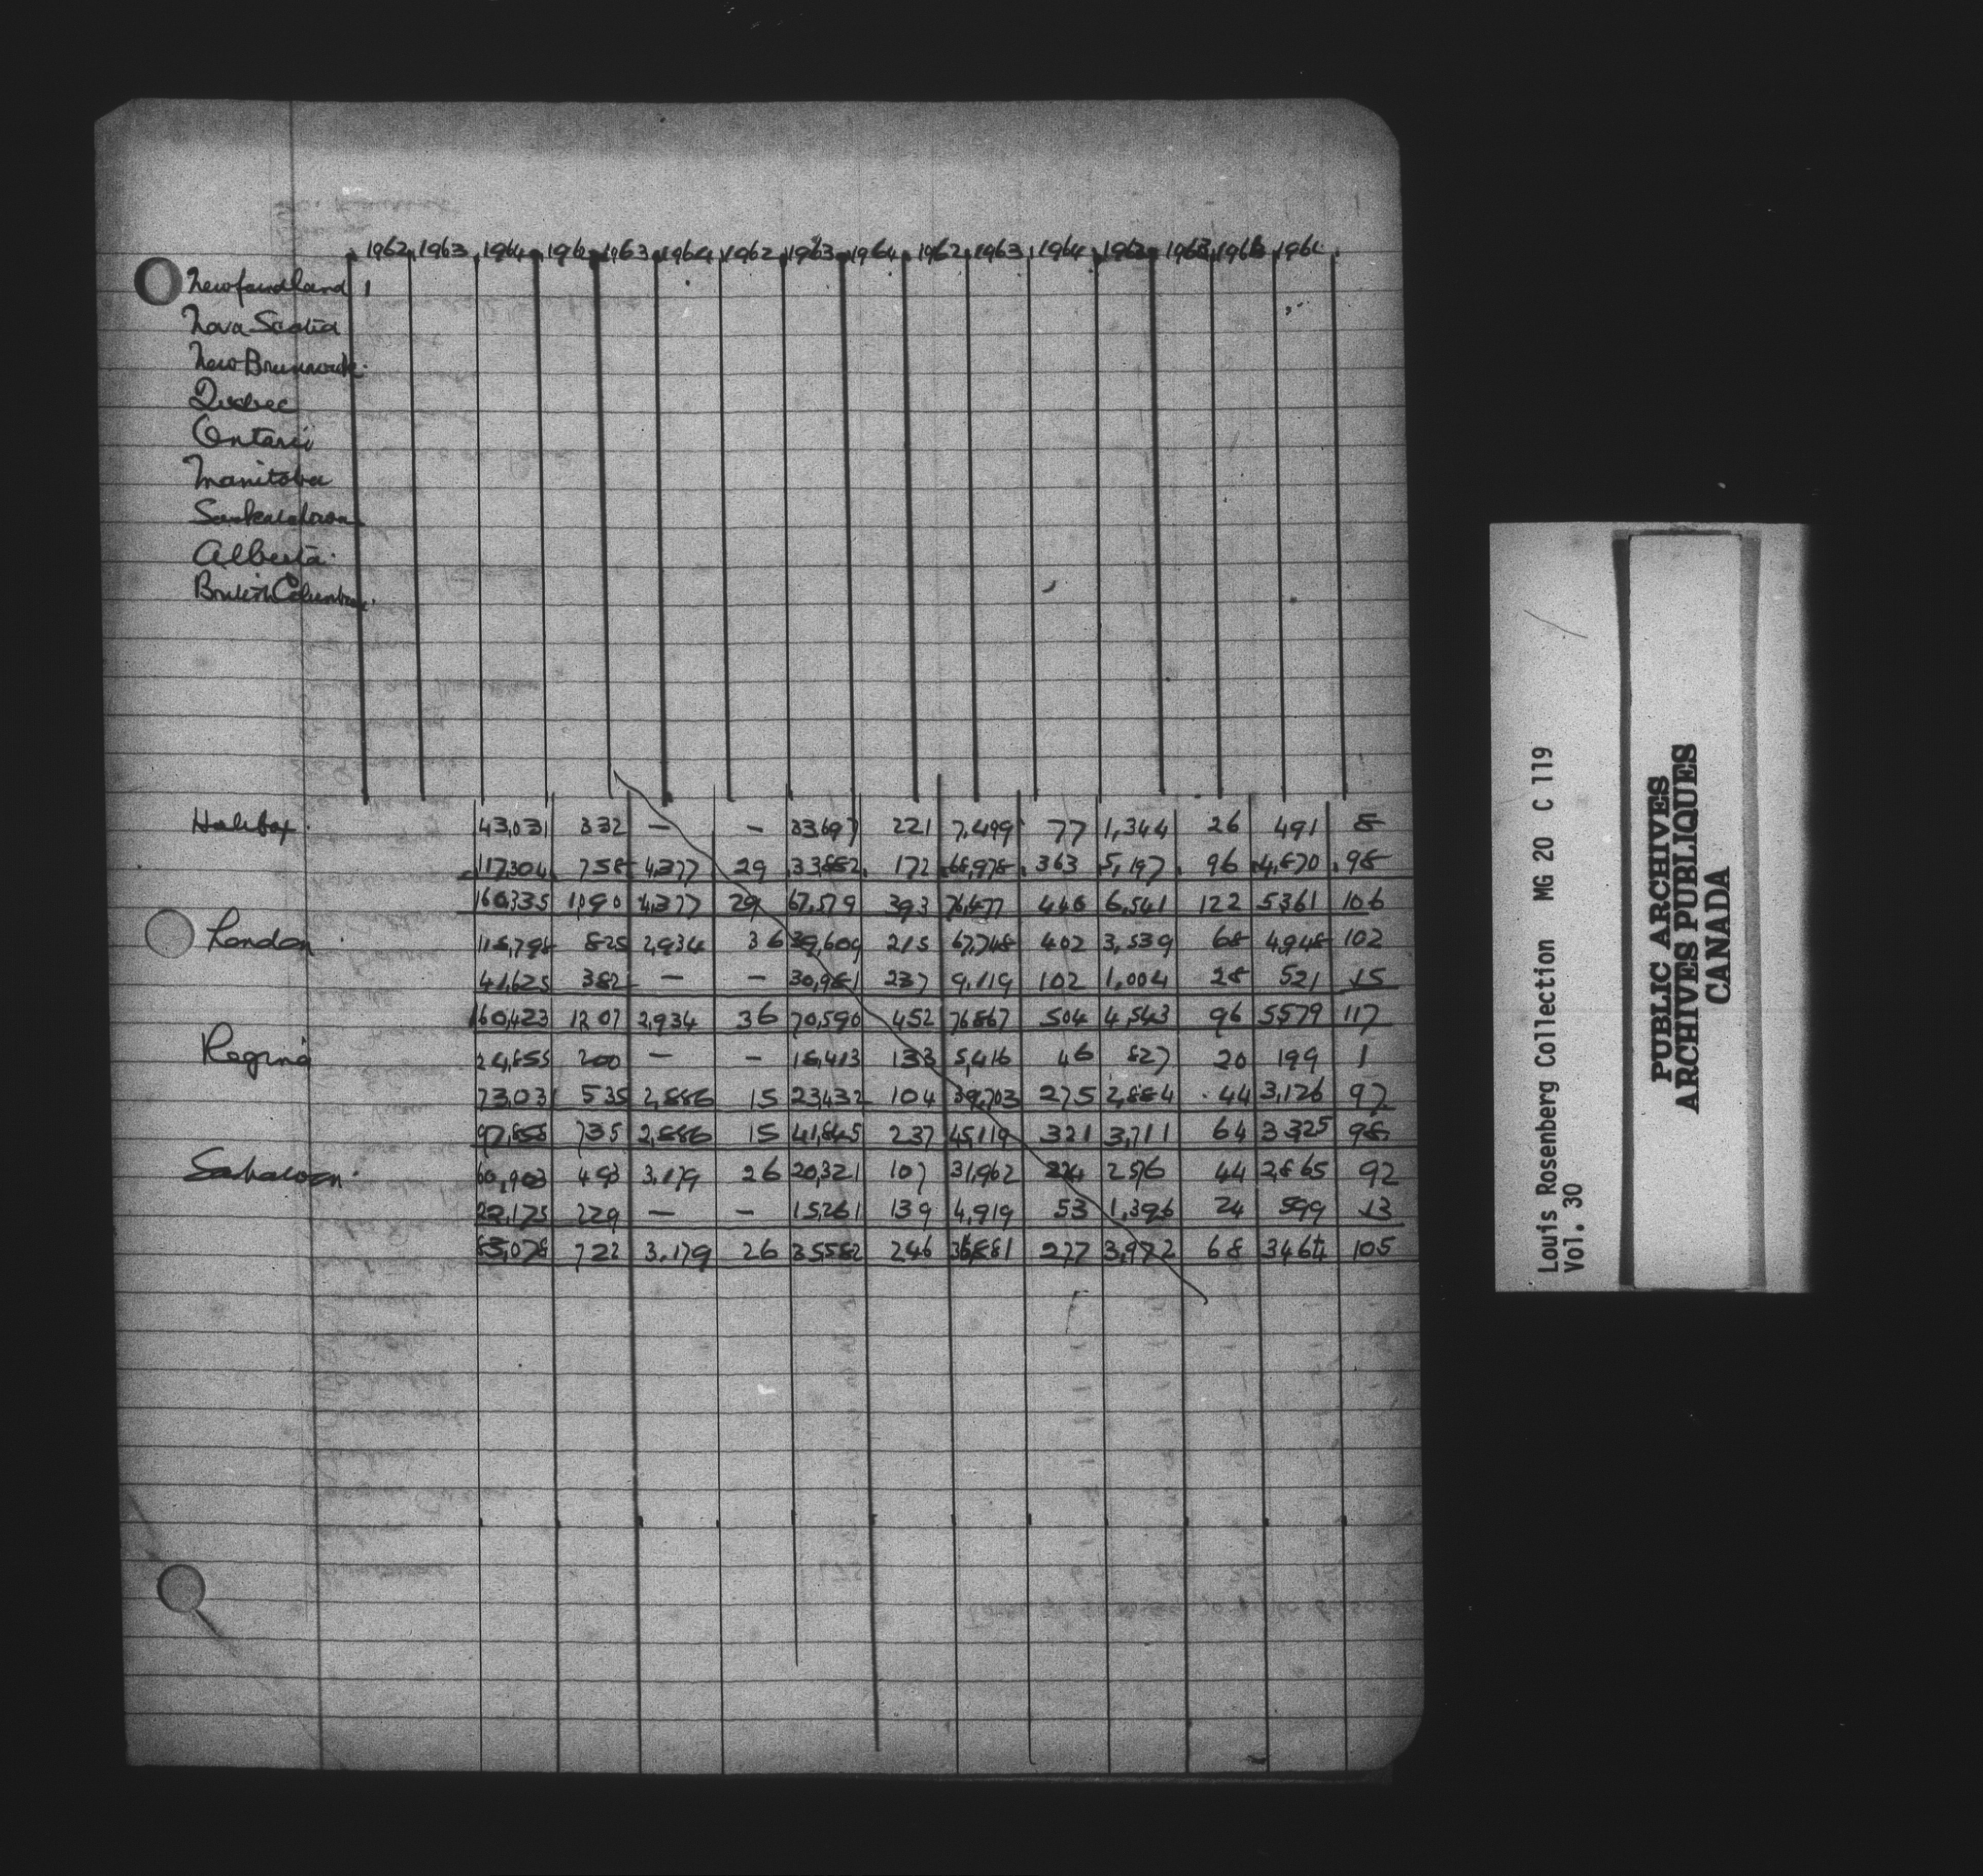 1962 1963 1964 1962 1963 1964 1962 1963 1964 1962 1963 1964 1962 1963 1964
Newfoundland
Nova Scotia
New Brunswick
Quebec
Ontario
Manitoba
Saskatchewan
Alberta
British Columbia
Halifax 43,031 332 — — 33,697 221 7,499 77 1,344 26 491 8
117,304 758 4,377 29 33,882 172 68,978 363 5,197 96 4,870 98
160,335 1090 4,377 29 67,579 393 76,477 440 6,541 122 5361 106
London 118,798 825 2,934 36 39,609 215 67,748 402 3,539 68 4,948 102
41,625 382 — — 30,981 237 9,119 102 1,004 28 521 15
160,423 1207 2,934 36 70,590 452 76867 504 4,543 96 5579 117
Regina 24,855 200 — — 18,413 133 5,416 46 827 20 199 1
73,031 535 2,886 15 23,432 104 39,703 275 2,884 44 3,126 97
735 2,886 15 41,845 237 45,119 321 3,711 64 3325 98
60,903 493 3,179 26 20,321 107 31,962 224 2576 44 2,865 92
22,175 229 — — 15,261 139 4,919 53 1,396 24 599 13
83,078 722 3,179 26 35,582 246 36,881 277 3,972 68 3464 105
Louis Rosenberg Collection MG 20 C 119
Vol. 30
PUBLIC ARCHIVES
ARCHIVES PUBLIQUES
CANADA